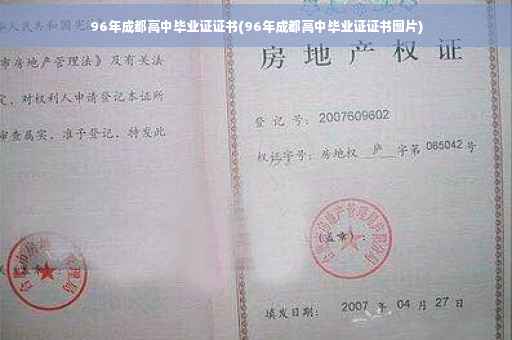 96年成都高中毕业证证书(96年成都高中毕业证证书图片)
华人民共和国宪
市房地产管理法》及有关法
定，对权利人申请登记本证所
审查属实，准予登记，特发此
房地产权证
登记号：2007609602
权证字号：房地权 庐 字第 085042 号
(盖章)：
填发日期： 2007 年 04 月 27 日